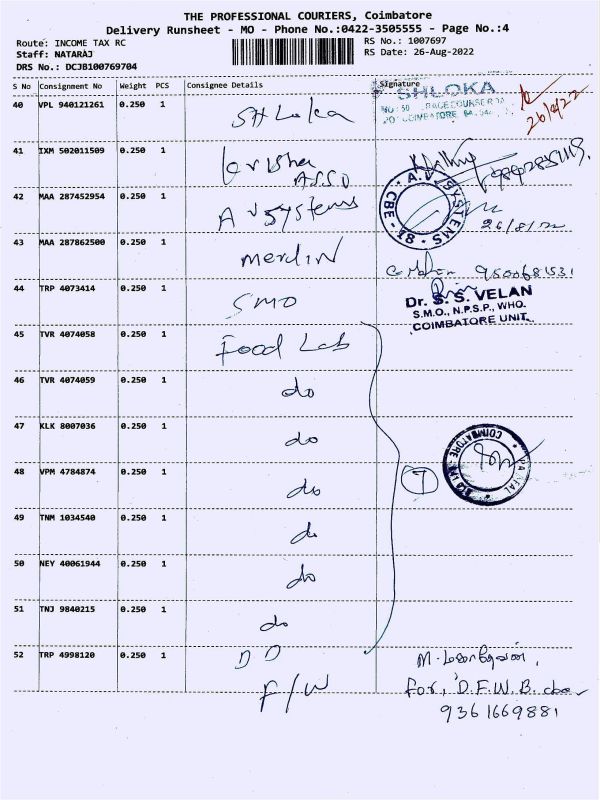 THE PROFESSIONAL COURIERS, Coimbatore
Delivery Runsheet - MO - Phone No.:0422-3505555 - Page No.:4
Route: INCOME TAX RC
Staff: NATARAJ
DRS No.: DCJB100769704
RS No.: 1007697
RS Date: 26-Aug-2022
S No Consignment No Weight PCS Consignee Details Signature
40 VPL 940121261 0.250 1 SHLoka
SHLOKA
26/8/22
41 IXM 502011509 0.250 1 krisha
ASSO
42 MAA 287452954 0.250 1 AV systems
A.V SYSTEMS CBE - 18
26/8/22
43 MAA 287862500 0.250 1 merdIN
9500681531
44 TRP 4073414 0.250 1 SMO
Dr. S. S. VELAN
S.M.O., N.P.S.P., WHO.
COIMBATORE UNIT.
45 TVR 4074058 0.250 1 Food Lab
46 TVR 4074059 0.250 1 do
47 KLK 8007036 0.250 1 do
COIMBATORE
48 VPM 4784874 0.250 1 do
7
49 TNM 1034540 0.250 1 do
50 NEY 40061944 0.250 1 do
51 TNJ 9840215 0.250 1 do
52 TRP 4998120 0.250 1 DD
F/W
for, D.F.W.B. cbe
9361669881